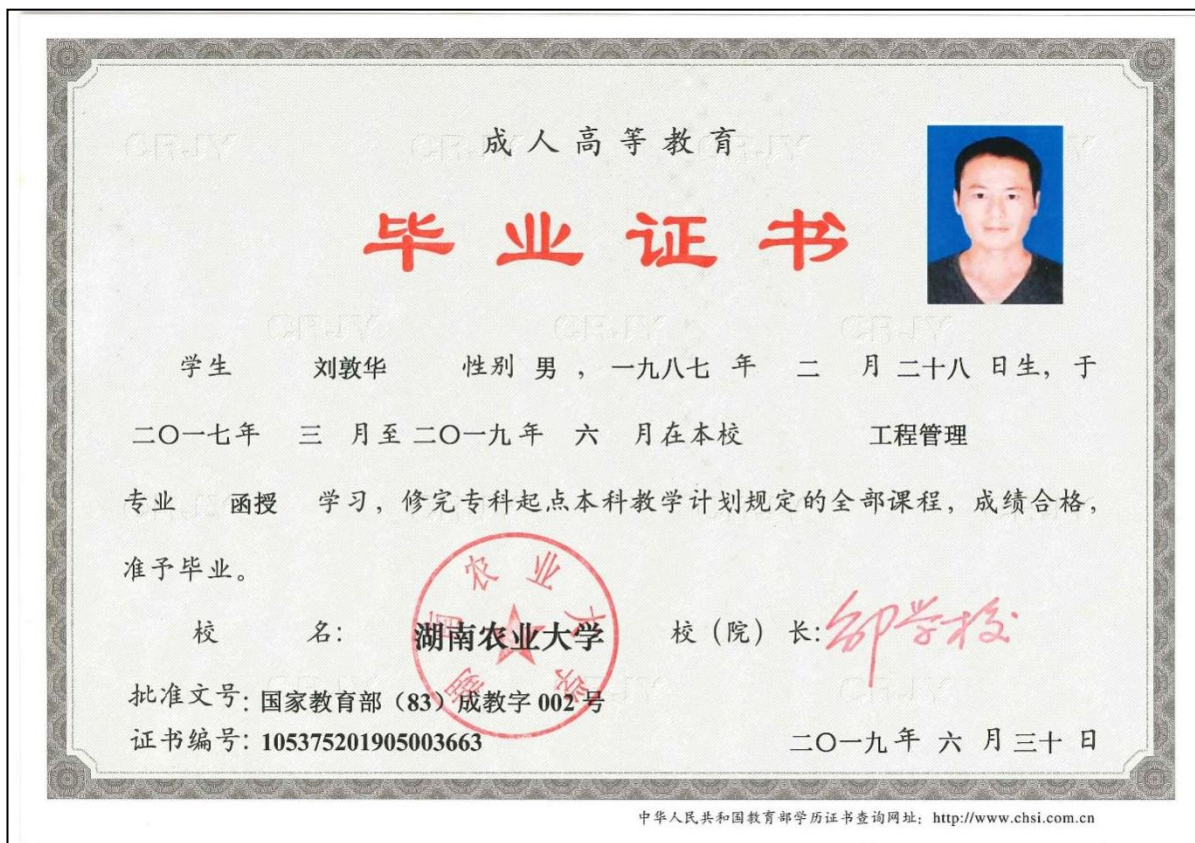 成人高等教育
毕业证书
学生 刘敦华 性别 男 ，一九八七 年 二 月 二十八 日生，于
二〇一七年 三 月至 二〇一九年 六 月在本校 工程管理
专业 函授 学习，修完专科起点本科教学计划规定的全部课程，成绩合格，
准予毕业。
校 名： 湖南农业大学 校（院）长：邹学校
湖南农业大学
批准文号：国家教育部（83）成教字 002 号
证书编号：105375201905003663 二〇一九年 六 月 三十 日
中华人民共和国教育部学历证书查询网址：http://www.chsi.com.cn